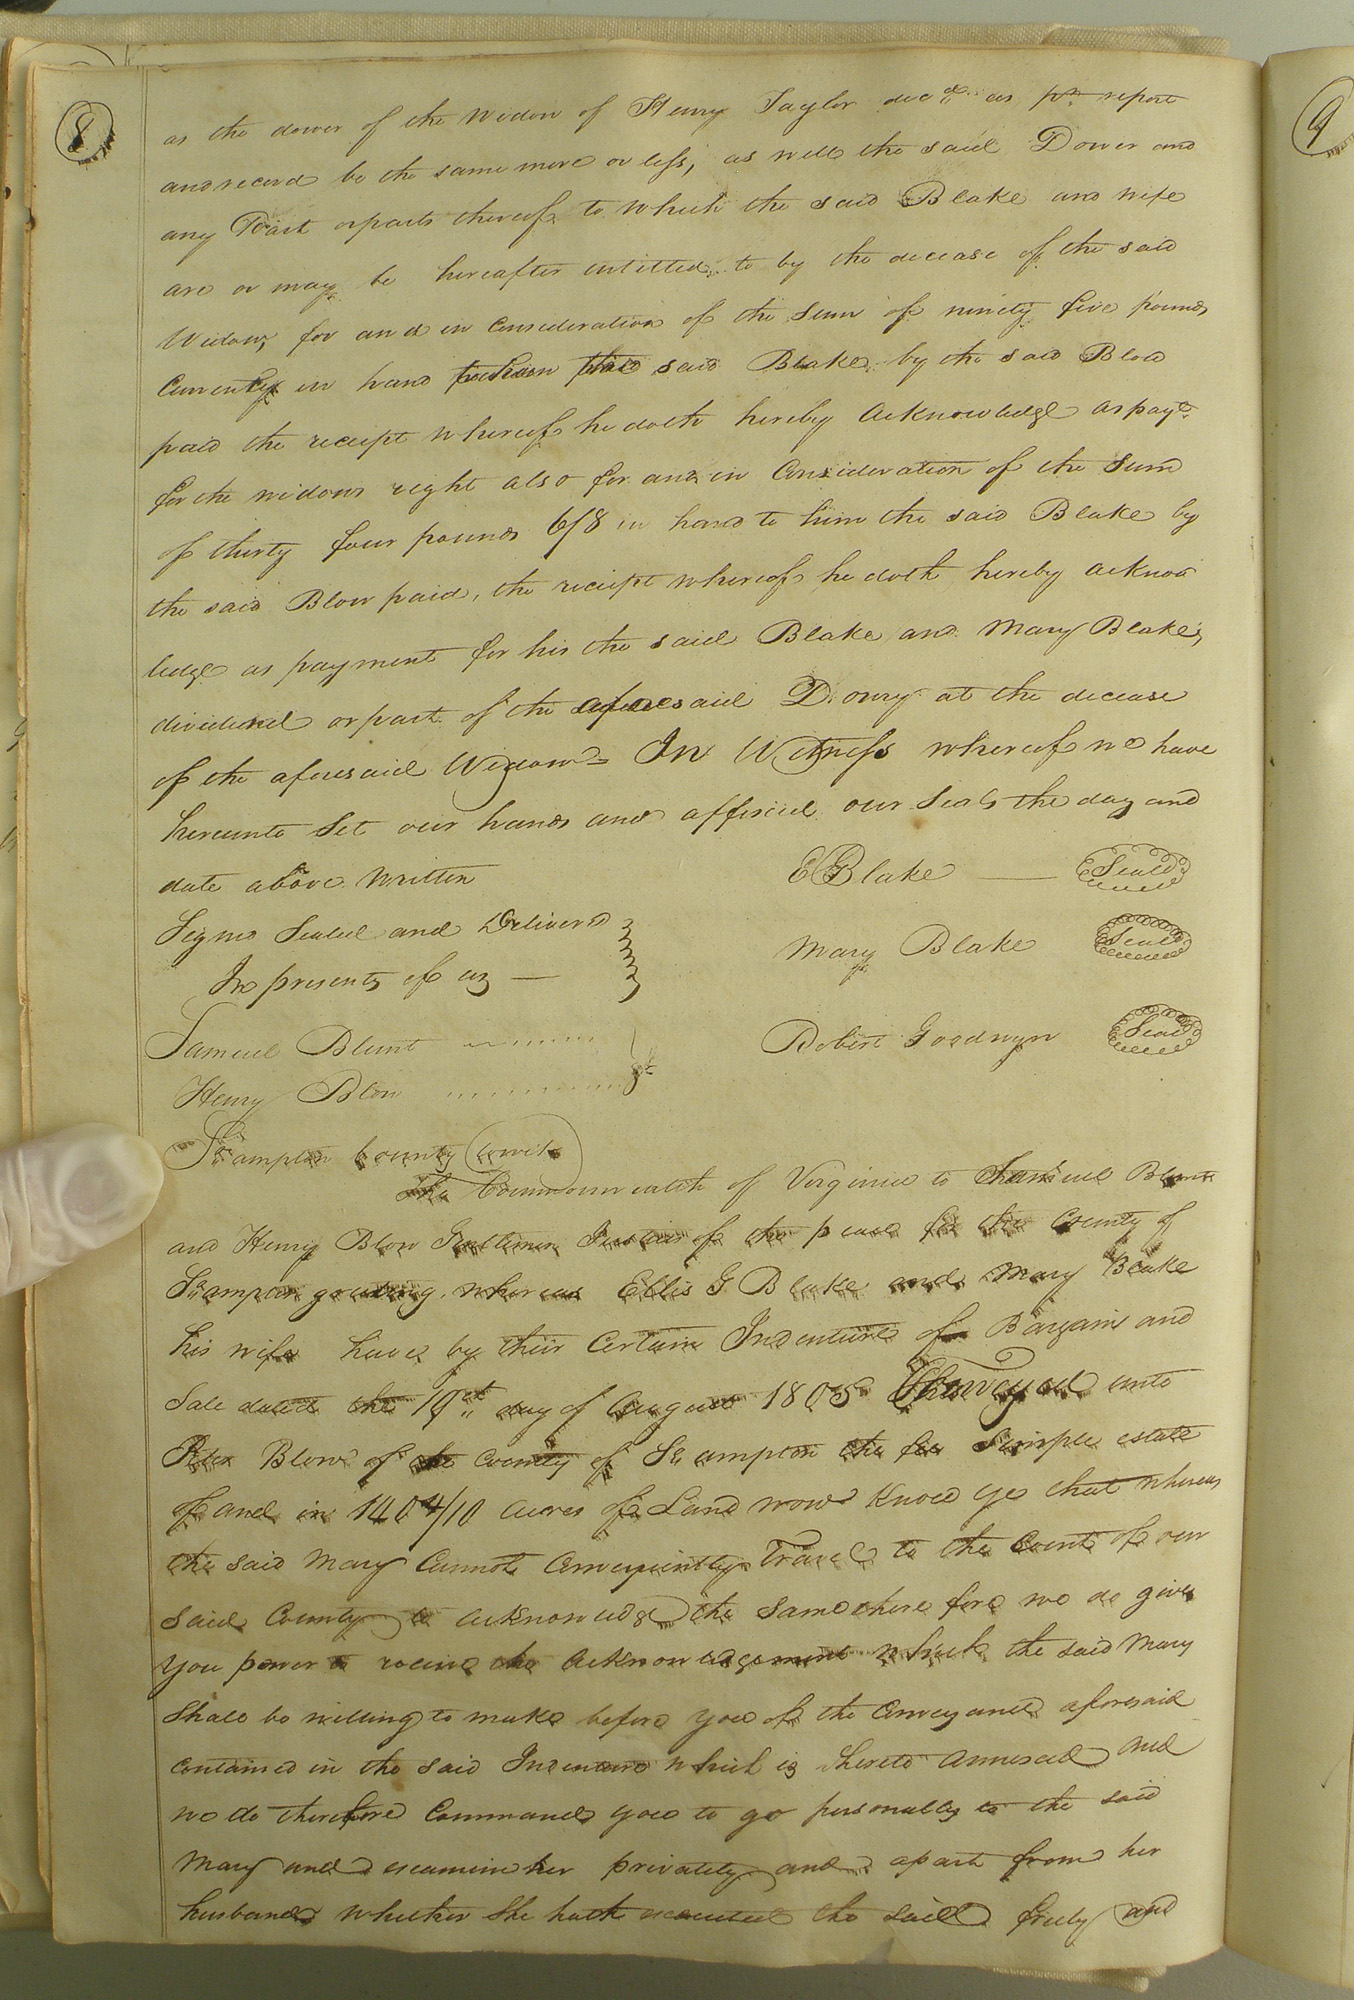 8
9
as the dower of the Widow of Henry Taylor decd. as pr. report
and record be the same more or less, as well the said Dower and
any Part or parts thereof to which the said Blake and wife
are or may be hereafter intitled to by the decease of the said
Widow, for and in Consideration of the Sum of ninety five pounds
Currency in hand said Blake by the said Blow
paid the receipt whereof he doth hereby Acknowledge as payt.
for the widows right also for and in Consideration of the Sum
of thirty four pounds 6/8 in hand to him the said Blake by
the said Blow paid, the receipt whereof he doth hereby Acknow
ledge as payment for his the said Blake and Mary Blake's
dividend or part of the aforesaid Dowry at the decease
of the aforesaid Widow = In Witness whereof we have
hereunto Set our hands and affixed our Seals the day and
date above Written
E G Blake Seald
Signd Sealed and Deliverd
Mary Blake Seal
In presents of us
Samuel Blunt
Robert Goodwyn Seal
Henry Blow
So.ampton County towit
The Commonwealth of Virginia to Samuel Blunt
and Henry Blow Gentlemen Justices of the peace for the County of
So.ampton greeting. whereas Ellis G Blake and Mary Blake
his wife have by their Certain Indenture of Bargain and
Sale dated the 19th day of August 1805 Conveyed unto
Blow of the County of So.ampton the fee Simple estate
of and in 140 4/10 Acres of Land now Know ye that whereas
the said Mary Cannot Conveniently Travel to the Court of our
said County to acknowledge the same therefore we do give
you power to receive the Acknowledgement which the said Mary
Shall be willing to make before you of the Conveyance aforesaid
contained in the said Indenture which is thereto annexed and
we do therefore Command you to go personally to the said
Mary and examine her privately and apart from her
husband whether She hath executed the said freely and